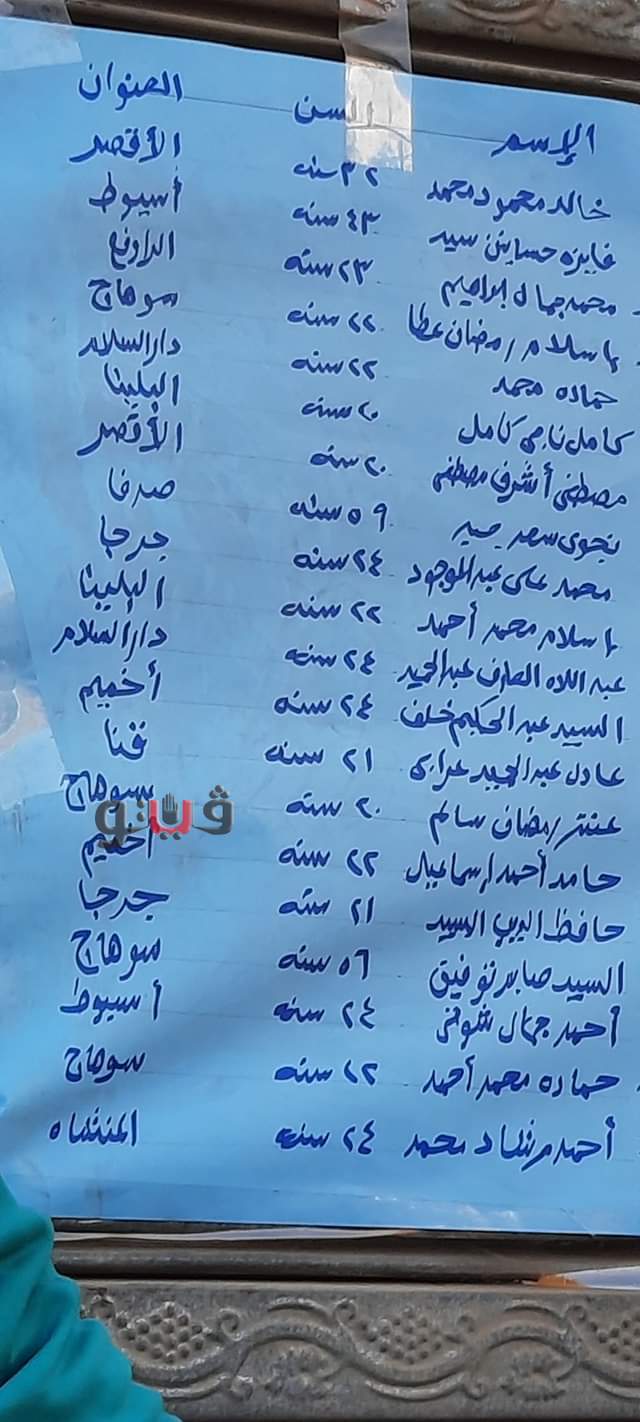 الإسم السن العنوان
خالد محمود محمد ٣٢ سنه الأقصر
فايزه حساين سيد ٤٣ سنه أسيوط
محمد جمال ابراهيم ٢٣ سنه
إسلام رمضان عطا ٢٢ سنه سوهاج
حماده محمد ٢٢ سنه دار السلام
كامل ناجى كامل ٢٠ سنه البلينا
مصطفى أشرف مصطفى ٢٠ سنه الأقصر
نجوى سعد سيد ٥٩ سنه صدفا
محمد على عبد الموجود ٢٤ سنه جرجا
إسلام محمد أحمد ٢٢ سنه البلينا
عبد اللاه العارف عبد الحميد ٢٤ سنه دار السلام
السيد عبد الحكيم خلف ٢٤ سنه أخميم
عادل عبد المجيد عرابى ٢١ سنه قنا
عنتر رمضان سالم ٢٠ سنه سوهاج
حامد أحمد إسماعيل ٢٢ سنه أخميم
حافظ الديب السيد ٢١ سنه جرجا
السيد صابر توفيق ٥٦ سنه سوهاج
أحمد جمال شوقى ٢٤ سنه أسيوط
حماده محمد أحمد ٢٢ سنه سوهاج
أحمد رشاد محمد ٢٤ سنه المنشاه
ڤيتو